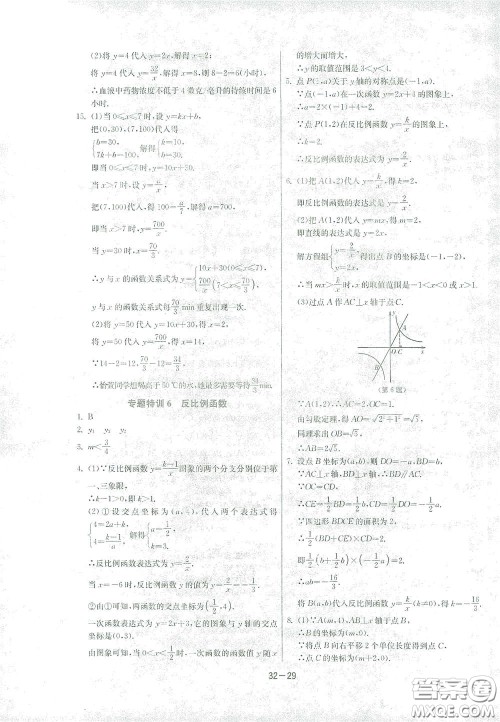 (2)将 y=4 代入 y=2x,解得 x=2;
将 y=4 代入 y=32/x,得 x=8,则 8-2=6(小时).
∴血液中药物浓度不低于 4 微克/毫升的持续时间是 6
小时.
5. (1)当 0≤x≤7 时,设 y=kx+b,
把(0,30),(7,100)代入,得
{b=30, 7k+b=100, 解得{k=10, b=30.
即当 0≤x≤7 时,y=10x+30.
当 x>7 时,设 y=a/x,
把(7,100)代入,得 100=a/7,解得 a=700,
即当 x>7 时,y=700/x.
当 y=30 时,x=70/3.
∴ y 与 x 的函数关系式为 y={10x+30(0≤x≤7), 700/x(7<x≤70/3),
y 与 x 的函数关系式每 70/3 min 重复出现一次.
(2)将 y=50 代入 y=10x+30,得 x=2,
将 y=50 代入 y=700/x,得 x=14.
∵14-2=12,70/3-12=34/3,
∴怡萱同学想喝高于 50℃的水,她最多需要等待 34/3 min.
专题特训 6 反比例函数
1. B
3. m<3/4
4. (1)∵反比例函数 y=(k-1)/x 图象的两个分支分别位于第
一、三象限,
∴k-1>0,∴k>1.
(2)①设交点坐标为(a,4),代入两个函数表达式得
{4=2a+k, 4=(k-1)/a, 解得{a=1/2, k=3,
∴反比例函数表达式为 y=2/x.
当 x=-6 时,反比例函数 y 的值为 y=2/-6=-1/3.
②由①可知,两函数的交点坐标为(1/2,4),
一次函数表达式为 y=2x+3,它的图象与 y 轴交点
坐标是(0,3).
由图象可知,当 0<x<1/2 时,一次函数的函数值 y 随 x
的增大而增大,
∴y 的取值范围是 3<y<4.
5. 点 P(1,a)关于 y 轴的对称点是(-1,a).
∵点(-1,a)在一次函数 y=2x+4 的图象上,
∴a=2×(-1)+4=2.
∵点 P(1,2)在反比例函数 y=k/x 的图象上,
∴k=2.
∴反比例函数的表达式为 y=2/x.
6. (1)把 A(1,2)代入 y=k/x,得 k=2,
即反比例函数的表达式是 y=2/x.
(2)把 A(1,2)代入 y=mx,得 m=2,
即直线的表达式是 y=2x.
解方程组{y=2/x, y=2x, 得出点 B 的坐标是(-1,-2),
∴当 mx>k/x 时,x 的取值范围是-1<x<0 或 x>1.
(3)过点 A 作 AC⊥x 轴于点 C.
y
A
O C x
B
(第 6 题)
∵A(1,2),∴AC=2,OC=1,
由勾股定理,得 AO=√(2²+1²)=√5.
同理求出 OB=√5,
∴AB=2√5.
7. 设点 B 坐标为(a,b),则 DO=-a,BD=b.
∵AC⊥x 轴,BD⊥x 轴,∴BD∥AC.
∵OC=OD,
∴CE=1/2BD=1/2b,CD=-2a.
∵四边形 BDCE 的面积为 2,
∴1/2(BD+CE)×CD=2.
∴ab=-4/3.
8. (1)∵A(m,4),AB⊥x 轴于点 B,
∴B 的坐标为(m,0).
∵将点 B 向右平移 2 个单位长度得到点 C,
∴点 C 的坐标为(m+2,0).
32-29
答案圈
MXQE.COM